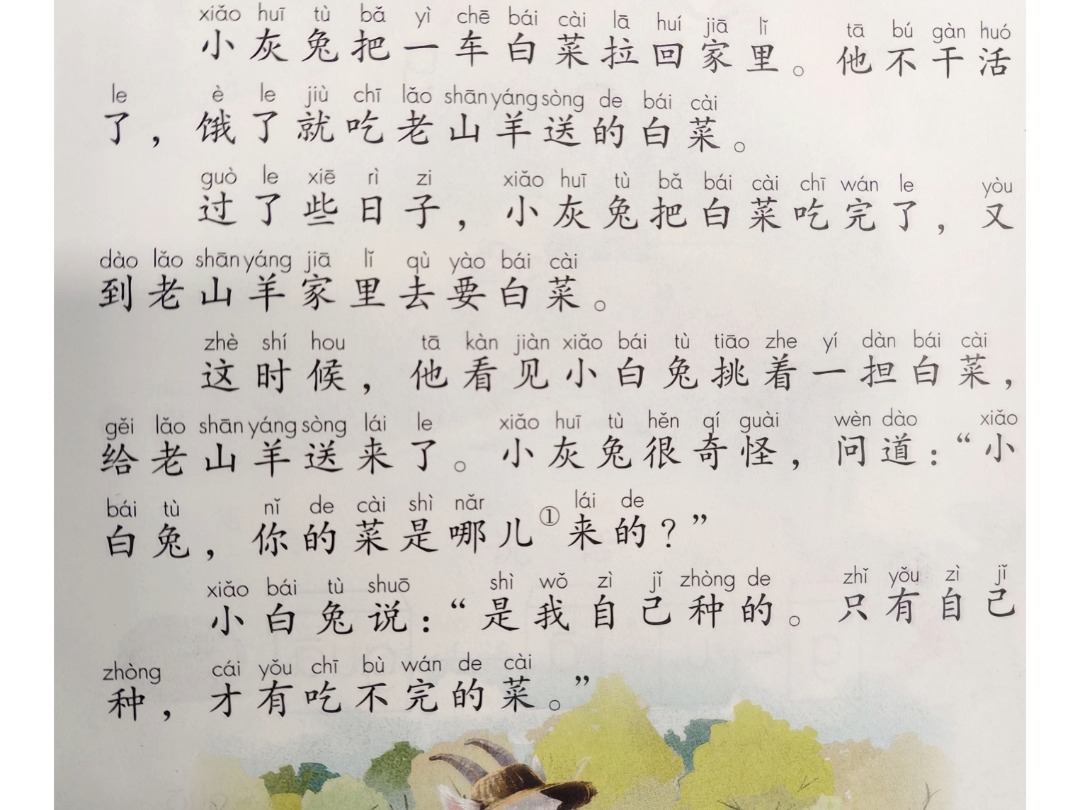 xiǎo huī tù bǎ yì chē bái cài lā huí jiā lǐ tā bú gàn huó
小灰兔把一车白菜拉回家里。他不干活
le è le jiù chī lǎo shān yáng sòng de bái cài
了，饿了就吃老山羊送的白菜。
guò le xiē rì zi xiǎo huī tù bǎ bái cài chī wán le yòu
过了些日子，小灰兔把白菜吃完了，又
dào lǎo shān yáng jiā lǐ qù yào bái cài
到老山羊家里去要白菜。
zhè shí hou tā kàn jiàn xiǎo bái tù tiāo zhe yí dàn bái cài
这时候，他看见小白兔挑着一担白菜，
gěi lǎo shān yáng sòng lái le xiǎo huī tù hěn qí guài wèn dào xiǎo
给老山羊送来了。小灰兔很奇怪，问道：“小
bái tù nǐ de cài shì nǎr lái de
白兔，你的菜是哪儿①来的？”
xiǎo bái tù shuō shì wǒ zì jǐ zhòng de zhǐ yǒu zì jǐ
小白兔说：“是我自己种的。只有自己
zhòng cái yǒu chī bù wán de cài
种，才有吃不完的菜。”